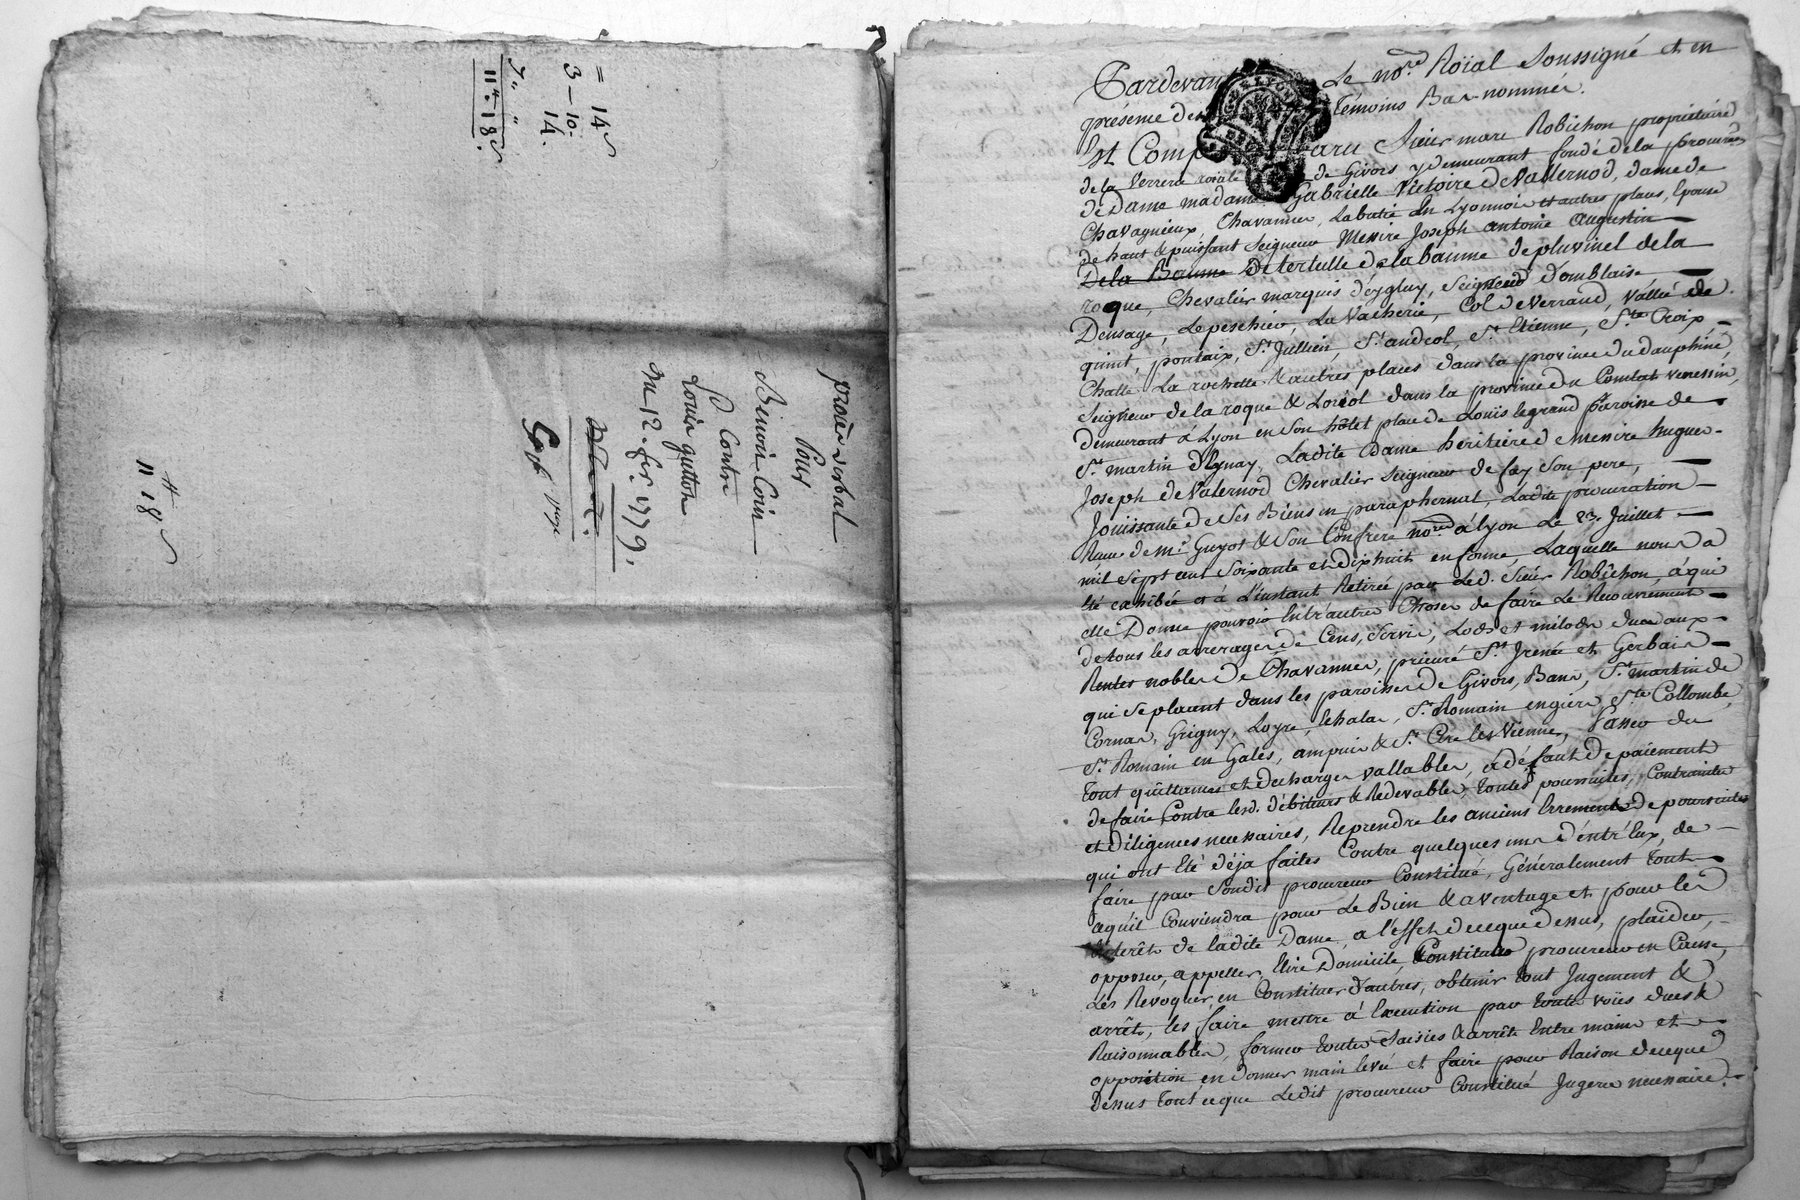 14 s
3 – 10.
14.
11 . 18 s.
procès verbal
Pour
Benoit Coin
Contre
Louis gutton
Du 12. fer. 1779.
11 # 18 s
Pardevant Le no.re Roïal Soussigné et en
présence des témoins Bas-nommés.
Est Comparu Sieur marc Robichon propriétaire
de la verrerie roïale de Givors y demeurant fondé de la procuration
de Dame madame Gabrielle Victoire de Valernod, dame de
Chavagnieux, Chavannes, Labatie en Lyonnois et autres places, Epouse
de haut & puissant Seigneur Messire Joseph antoine augustin
De la Baume De tertulle de la baume de pluvinel de la
roque, Chevalier marquis d'eygluy, Seigneur d'omblaise
Densage, Lepeschier, La Vacherie, Col de Verraud, vallée de
quint, pontaix, St. Jullien, St. andeol, St. Etienne, Ste. Croix,
Chatte La rochette & autres places dans la province du dauphiné,
Seigneur de la roque & Loriol dans la province du Comtat venessin,
demeurant à Lyon en son hôtel place de Louis le grand paroisse de
St. martin d'Eynay, Ladite Dame héritière de Messire hugues
Joseph de Valernod Chevalier Seigneur de fay Son pere,
Jouissante de Ses Biens en paraphernal, Ladite procuration
Reçue de me. Guyot & Son Confrere no.res à Lyon Le 23. Juillet
mil Sept cent Soixante et dix huit en forme Laquelle nous a
Eté exhibée et à L'instant Retirée par Led. Sieur Robichon, à qui
elle Donne pouvoir Entr'autres Choses de faire Le Recouvrement
de tous les arrerages de Cens, Servis, Lods et milods dues aux
Rentes nobles de Chavannes, prieuré St. Irenée et Gerbais
qui Se placent dans les paroisses de Givors, Bans, St. martin de
Cornas, Grigny, Loyre, Echalas, St. Romain en gier, Ste. Collombe,
St. Romain en Gales, ampuis & St. Cire les Vienne, Passer du
tout quittances et decharges vallables, à défaut de païement
de faire Contre lesd. débiteurs & Redevables, toutes poursuites, Contraintes
et Diligences necessaires, Reprendre les anciens Errements de poursuites
qui ont Eté déja faites Contre quelques uns d'entr'Eux, de
faire par Sondit procureur Constitué, Généralement tout
cequ'il Conviendra pour Le Bien & aventage et pour les
interêts de ladite Dame, a l'effet de ceque dessus, plaider,
opposer, appeller, Elire Domicile, Constituer procureur en Cause,
Les Revoquer, en Constituer d'autres, obtenir tout Jugement &
arrêts, les faire mettre à Execution par toutes voïes dues &
Raisonnables, former toutes Saisies & arrêts Entre mains et
opposition, en donner main levée et faire pour Raison deceque
dessus tout ceque Ledit procureur Constitué Jugera necessaire.